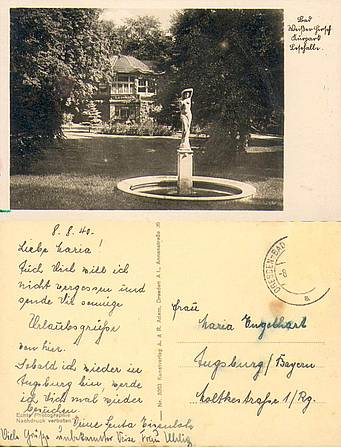 Bad
Weißer Hirsch
Kurpark
Lesehalle.
8. 8. 40.
Liebe Maria!
Auch Dich will ich
nicht vergessen und
sende Dir sonnige
Urlaubsgrüße
von hier.
Sobald ich wieder in
Augsburg bin, werde
ich Dich mal wieder
besuchen.
Deine Senta
Viele Grüße unbekannter Vise Frau
Echte Photographie
Nachdruck verboten
Nr. 5203 Kunstverlag A. & R. Adam, Dresden A 1, Annenstraße
DRESDEN-BAD
-8
a
Frau
Maria Engelhart
Augsburg/Bayern
Moltkestrasse 1/Rg.